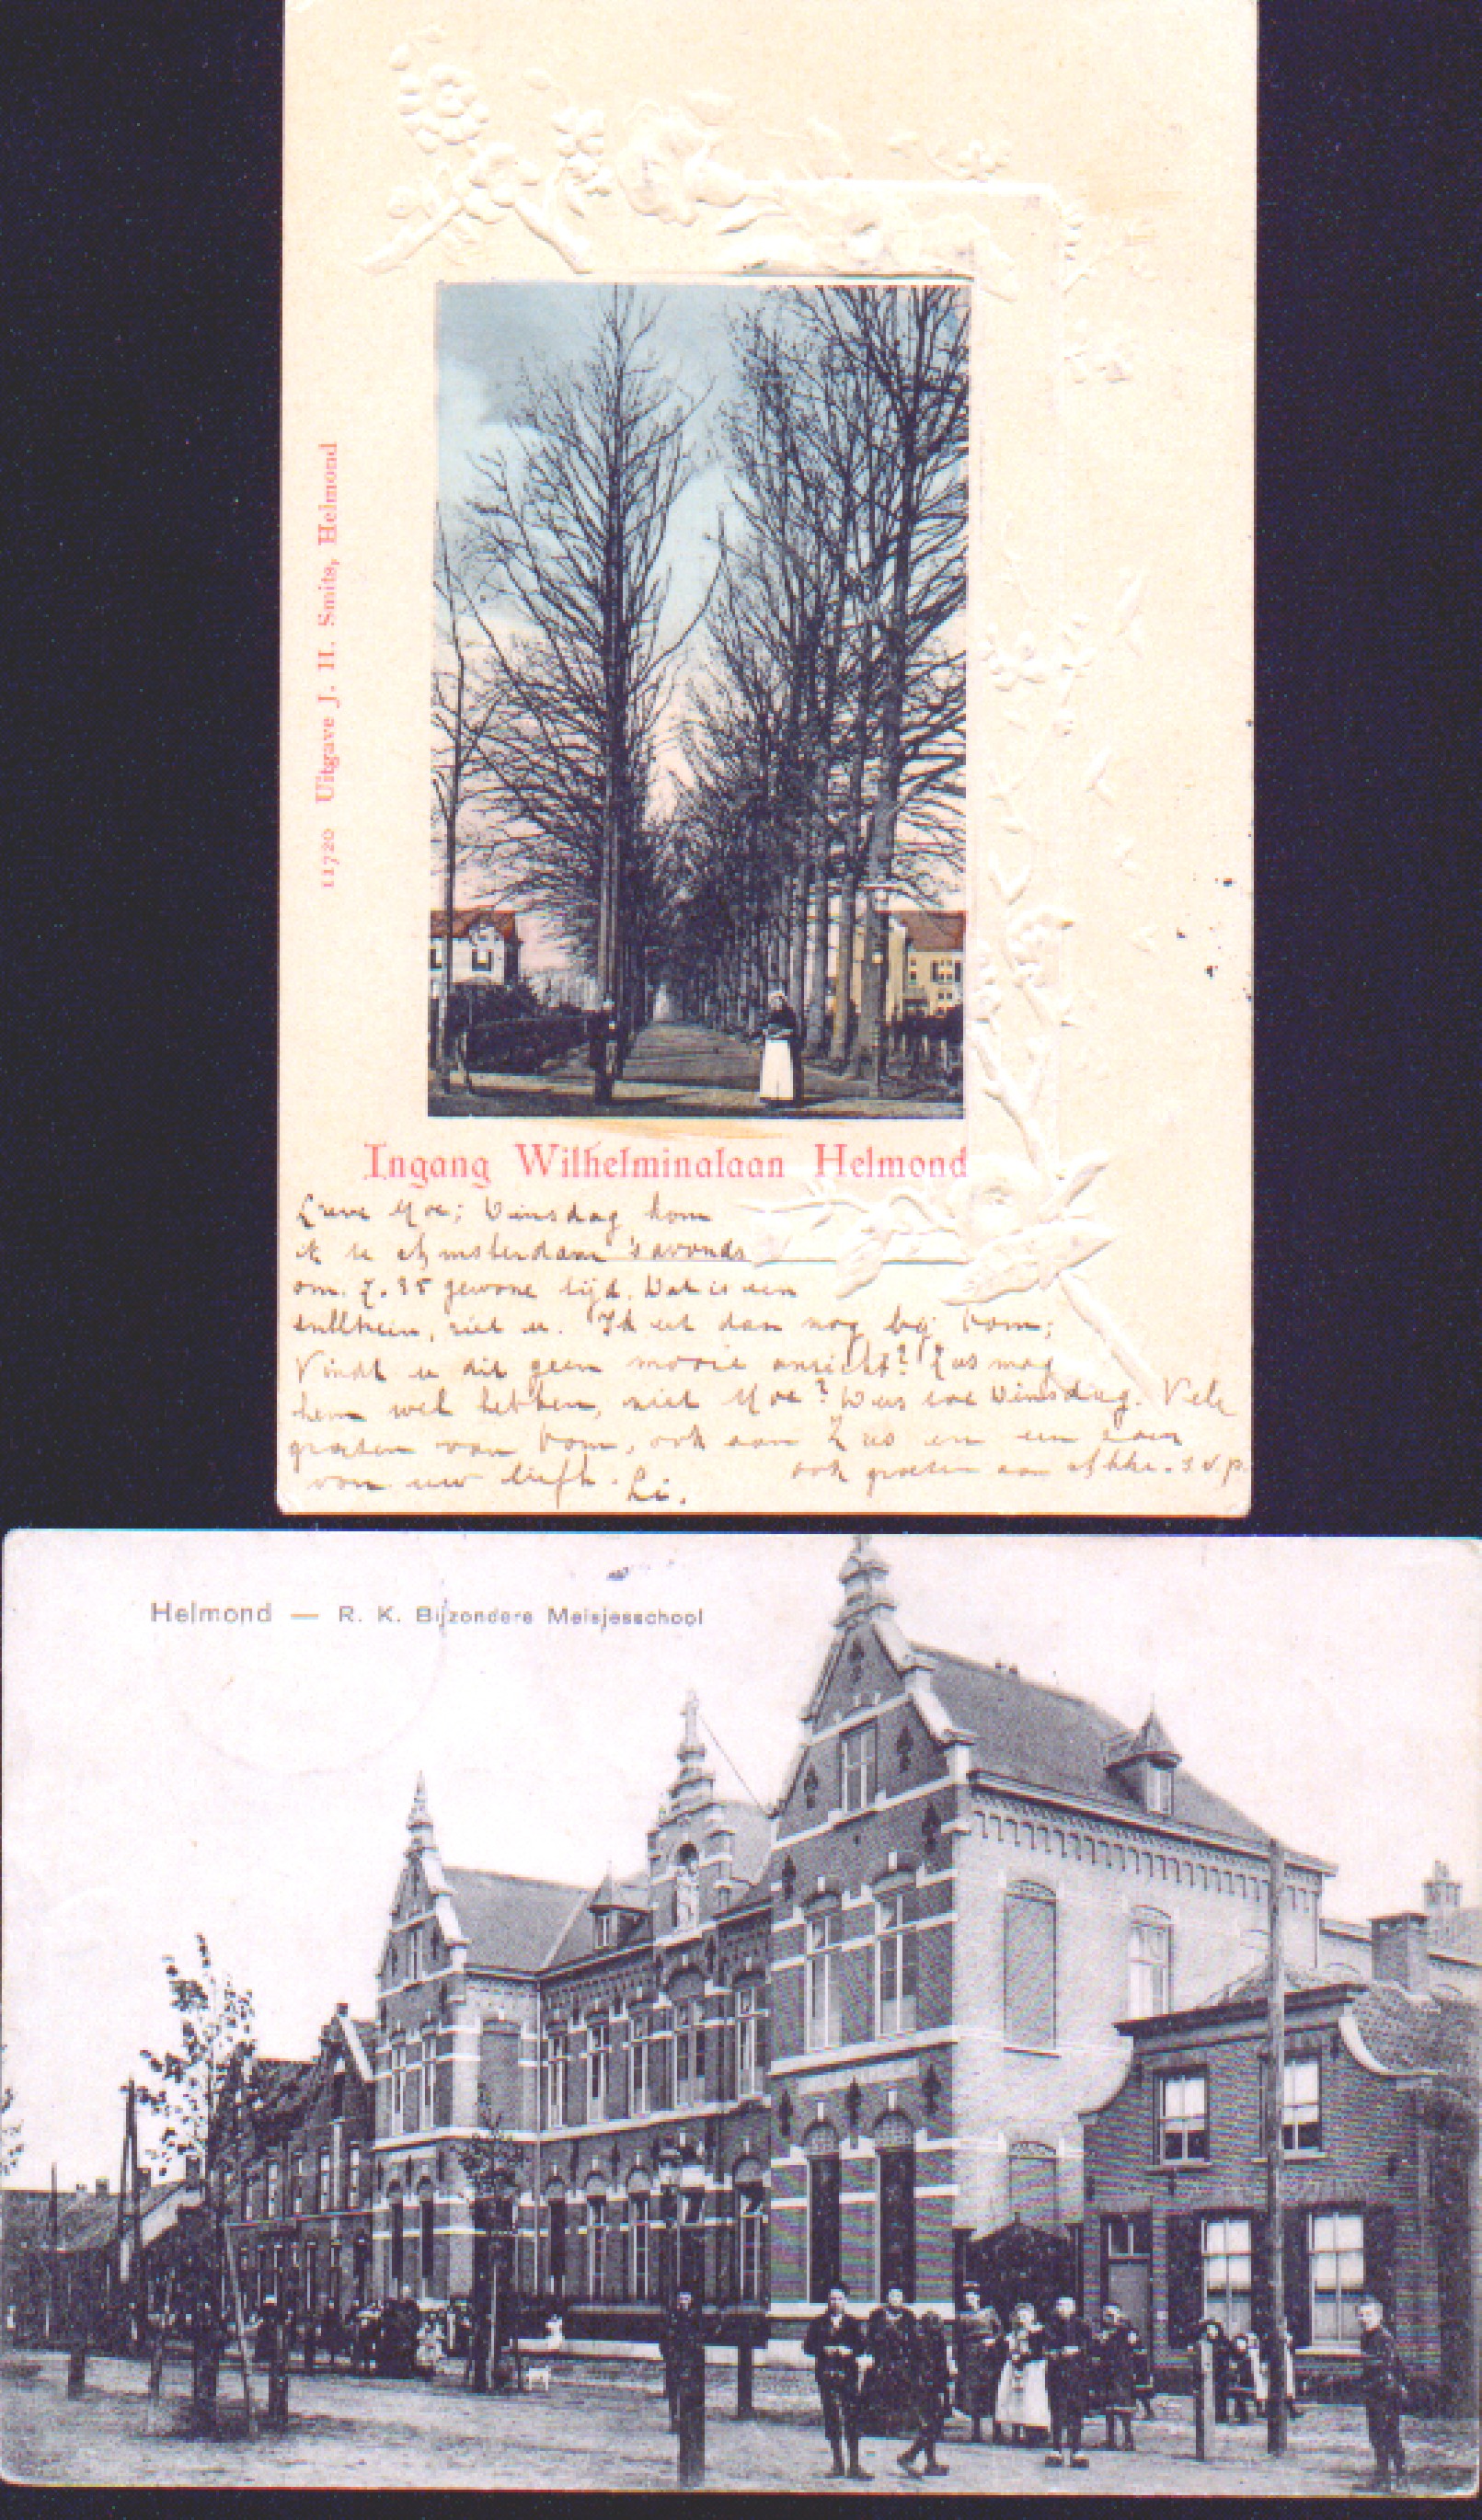 11720 Uitgave J. H. Smits, Helmond
Ingang Wilhelminalaan Helmond
Lieve Moe; Dinsdag kom
ik te Amsterdam 's avonds
om 7.35 gewone tijd. Dat is een
, niet u. Ik eet dan nog bij oom;
Vindt u dit geen mooie ansicht? Zus mag
hem wel hebben, niet Moe? Dus tot Dinsdag. Vele
groeten van oom, ook aan Zus en een zoen
van uw liefh. Li.
ook groeten aan s.v.p.
Helmond — R. K. Bijzondere Meisjesschool